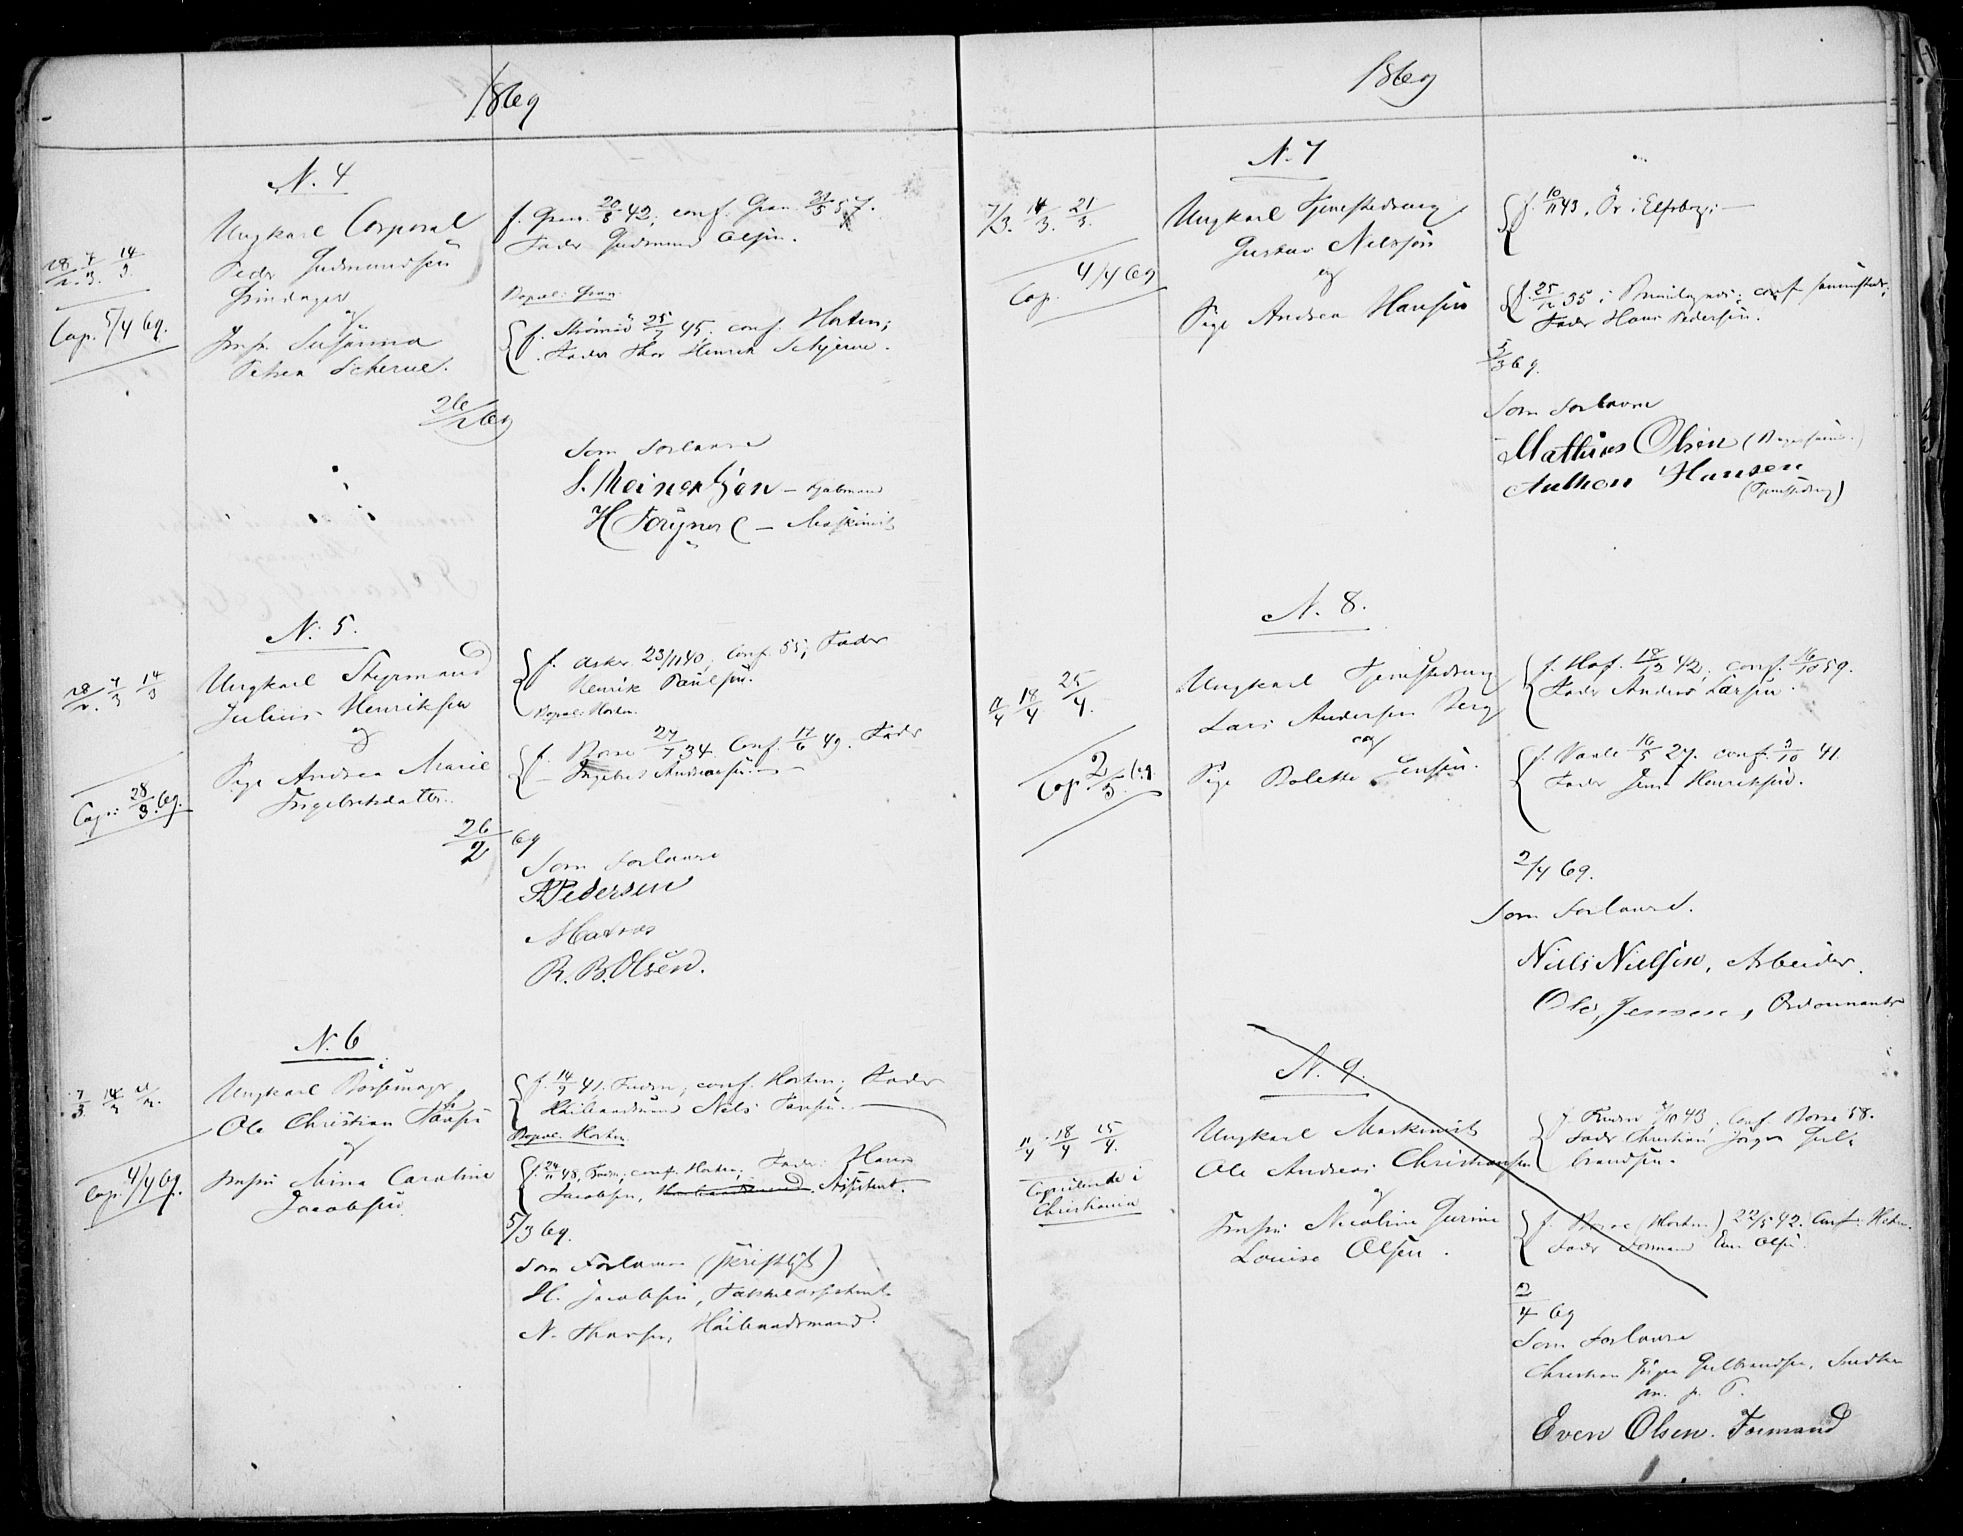 1869
N. 4
28/2. 7/3. 14/3
Cop. 5/4 69.
Ungkarl Corporal
Peder Gudmundsen
og
Jomfr. Susanna
Petrea Scherve.
f. Gran 20/8 42, conf. Gran 31/5 57.
Fader Gudmund Olsen.
Bopæl: Gran.
f. Strömsö 25/7 45. conf. Horten;
Fader Thor Henrik Schjerve.
26/2 69
Som Forlovere
S. Meinertzen
H
N. 5.
28/2. 7/3 14/3
Cop: 28/3. 69.
Ungkarl Styrmand
Julius Henriksen
og
Pige Andrea Marie
Ingebretsdatter.
f. Asker 23/11 40, Conf. 55; Fader
Henrik Paulsen.
Bopæl: Horten.
f. Borre 27/7 34. Conf. 17/6 49. Fader
Ingebret Andreasen.
26/2 69
Som Forlovere
A Pedersen
Matros
R. B. Olsen.
N. 6
7/3 14/3 21/3.
Cop. 4/4 69.
Ungkarl Bössemager
Ole Christian
og
Jomfru Mina Caroline
Jacobsen
f. 14/9 41. conf. Horten; Fader
Haibaadsmand Nils
Bopæl: Horten.
f. 24/11 48, conf. Horten; Fader: Hans
Jacobsen, Assistent.
5/3 69.
Som Forlovere (skriftligt)
H. Jacobsen,
N. Haibaadsmand.
1869
N. 7
7/3. 14/3. 21/3.
Cop. 4/4 69
Ungkarl Tjenestedreng
Gustav Nilsson
og
Pige Andrea Hansen
f. 10/11 43, Ör i Elfsborg
f. 25/12 35 i conf. sammesteds;
Fader Hans Pedersen.
5/3 69.
Som Forlovere
Mathias Olsen
Anthon Hansen
(Tjenestedreng)
N. 8.
11/4 18/4 25/4.
Cop 2/5. 69.
Ungkarl Tjenestedreng
Lars Andersen Berg
og
Pige Bolette Jensen.
f. Hof. 18/12 42, conf. 16/10 59.
Fader Anders Larsen.
f. Vaale 16/5 27. conf. 3/10 41.
Fader Jens Henriksen.
2/4 69.
Som Forlovere.
Niels Nielsen, Arbeider.
Ole Jensen, Ordonnants
N. 9.
11/4 18/4 25/4.
Copulerede i
Christiania
Ungkarl Maskinist
Ole Andreas Christiansen
og
Jomfru Nicoline Gurine
Louise Olsen.
43, Conf. Borre 58.
Fader Christian Jörgen Gul-
brandsen.
f. Borre (Horten) 22/5 42. Conf: Horten.
Fader Formand Even Olsen.
2/4 69
Som Forlovere
Christian Jörgen Gulbrandsen, Snedker
m. p. P.
Even Olsen. Formand